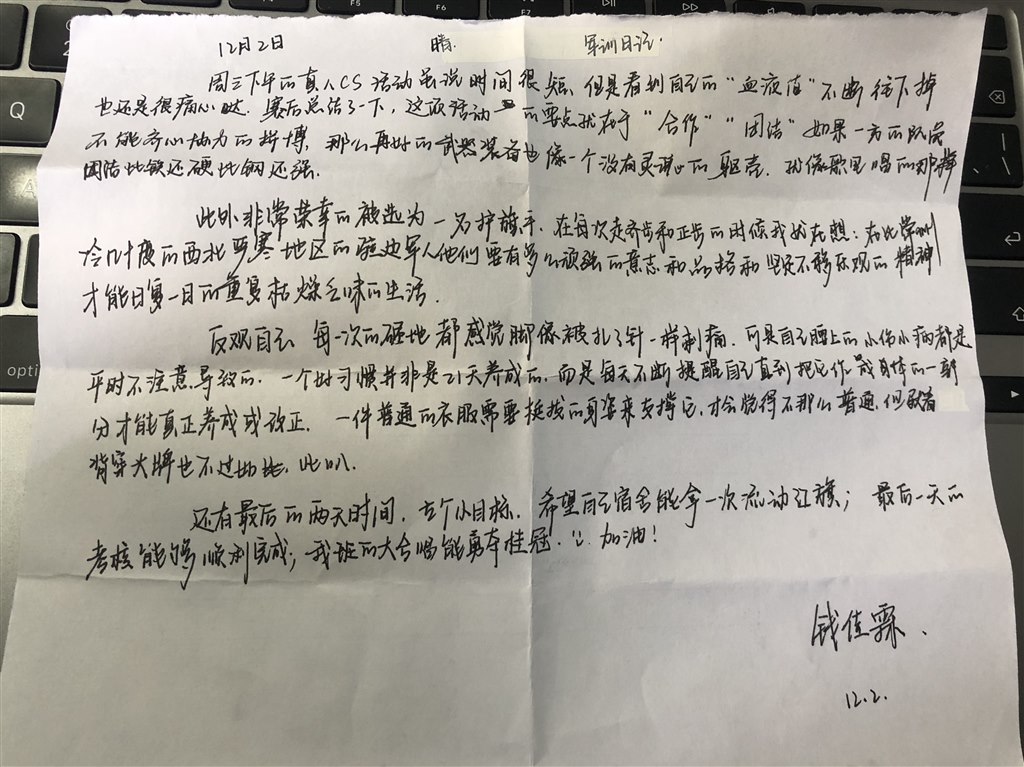 12月2日 晴. 军训日记.
周三下午的真人CS活动虽说时间很短, 但是看到自己的“血液值”不断往下掉
也还是很痛心哒. 最后总结了一下, 这次活动的要点就在于“合作”“团结”如果一方的队员
不能齐心协力的拼博, 那么再好的武器装备也像一个没有灵魂的驱壳. 就像歌里唱的那样
团结比铁还硬比钢还强.
此外非常荣幸的被选为一名护旗手. 在每次走齐步和正步的时候我就在想: 在比常州
冷几十度的西北严寒地区的驻边军人他们要有多么顽强的意志和品格和坚定不移乐观的精神
才能日复一日的重复枯燥乏味的生活.
反观自己 每一次的砸地都感觉脚像被扎了针一样刺痛. 可是自己腰上的小伤小病都是
平时不注意导致的. 一个好习惯并非是21天养成的, 而是每天不断提醒自己直到把它作成身体的一部
分才能真正养成或改正. 一件普通的衣服需要挺拔的身姿来支撑它, 才会觉得不那么普通, 但驼着
背穿大牌也不过如此.
还有最后的两天时间, 立个小目标. 希望自己宿舍能拿一次流动红旗; 最后一天的
考核能够顺利完成; 我班的大合唱能勇夺桂冠. 加油!
钱佳霖.
12.2.